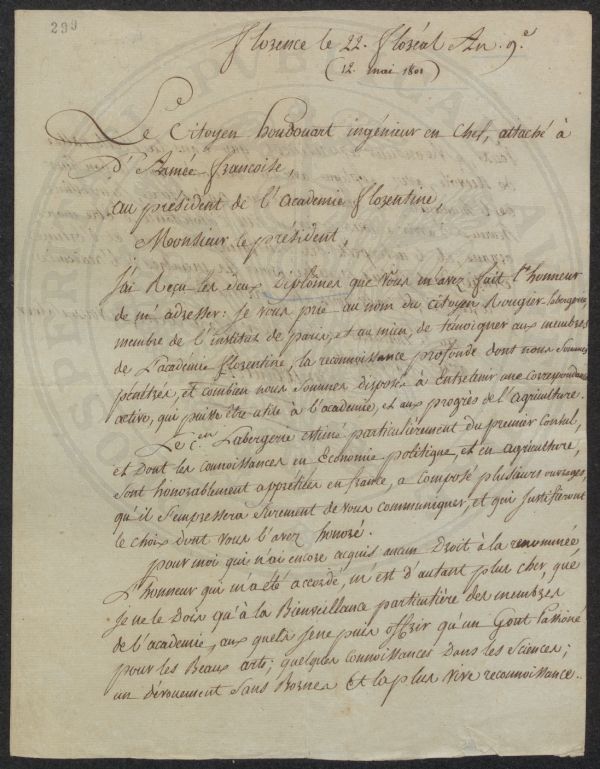 299
Florence le 22. floréal An. 9.e
(12. mai 1801)
Le Citoyen houdouart ingénieur en Chef, attaché à
l'Armée françoise,
au président de l'Academie florentine,
Monsieur le président,
J'ai Reçu les deux Diplômes que Vous m'avez fait l'honneur
de m'adresser: Je vous prie au nom du citoyen Rougier-labergerie
membre de l'institut de paris, et au mien, de témoigner aux membres
de L'académie florentine, la reconnoissance profonde dont nous Sommes
pénétrés, et combien nous Sommes disposés à Entretenir une correspondance
active, qui puisse être utile à l'académie, et aux progrès de l'agriculture.
Le c.en Labergerie estimé particulièrement du premier Consul,
et Dont les connoissances en Economie politique, et en agriculture,
sont honorablement appretiées en france, a composé plusieurs ouvrages,
qu'il S'empressera Surement de vous communiquer, et qui justifieront
le choix dont vous l'avez honoré.
pour moi qui n'ai encore acquis aucun Droit à la renommée
L'honneur qui m'a été accordé, m'est d'autant plus cher, que
je ne le Dois qu'à la Bienveillance particulière des membres
de l'academie, aux quels je ne puis offrir qu'un Gout Passioné
pour les Beaux arts; quelques connoissances Dans les Sciences;
un dévouement Sans Bornes Et la plus vive reconnoissance.